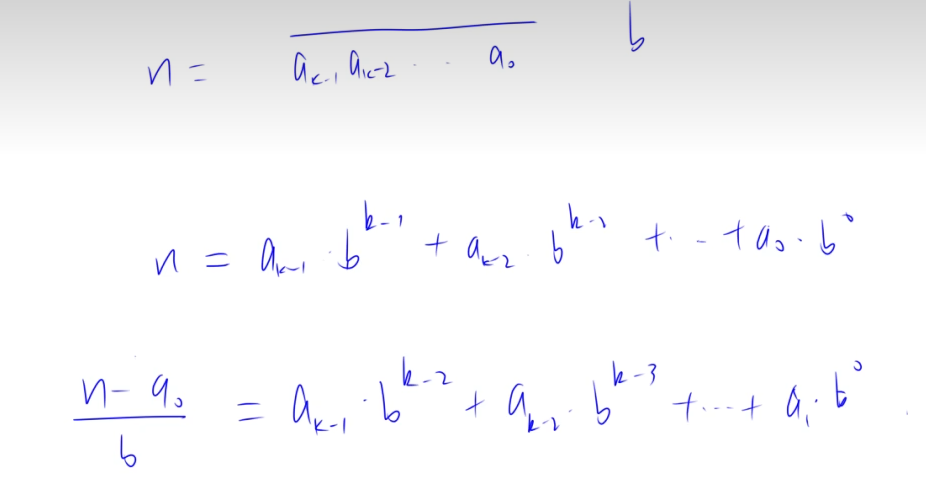 n = \overline{a_{k-1} a_{k-2} \cdots a_0} b
n = a_{k-1} \cdot b^{k-1} + a_{k-2} \cdot b^{k-2} + \cdots + a_0 \cdot b^0
\frac{n - a_0}{b} = a_{k-1} \cdot b^{k-2} + a_{k-2} \cdot b^{k-3} + \cdots + a_1 \cdot b^0